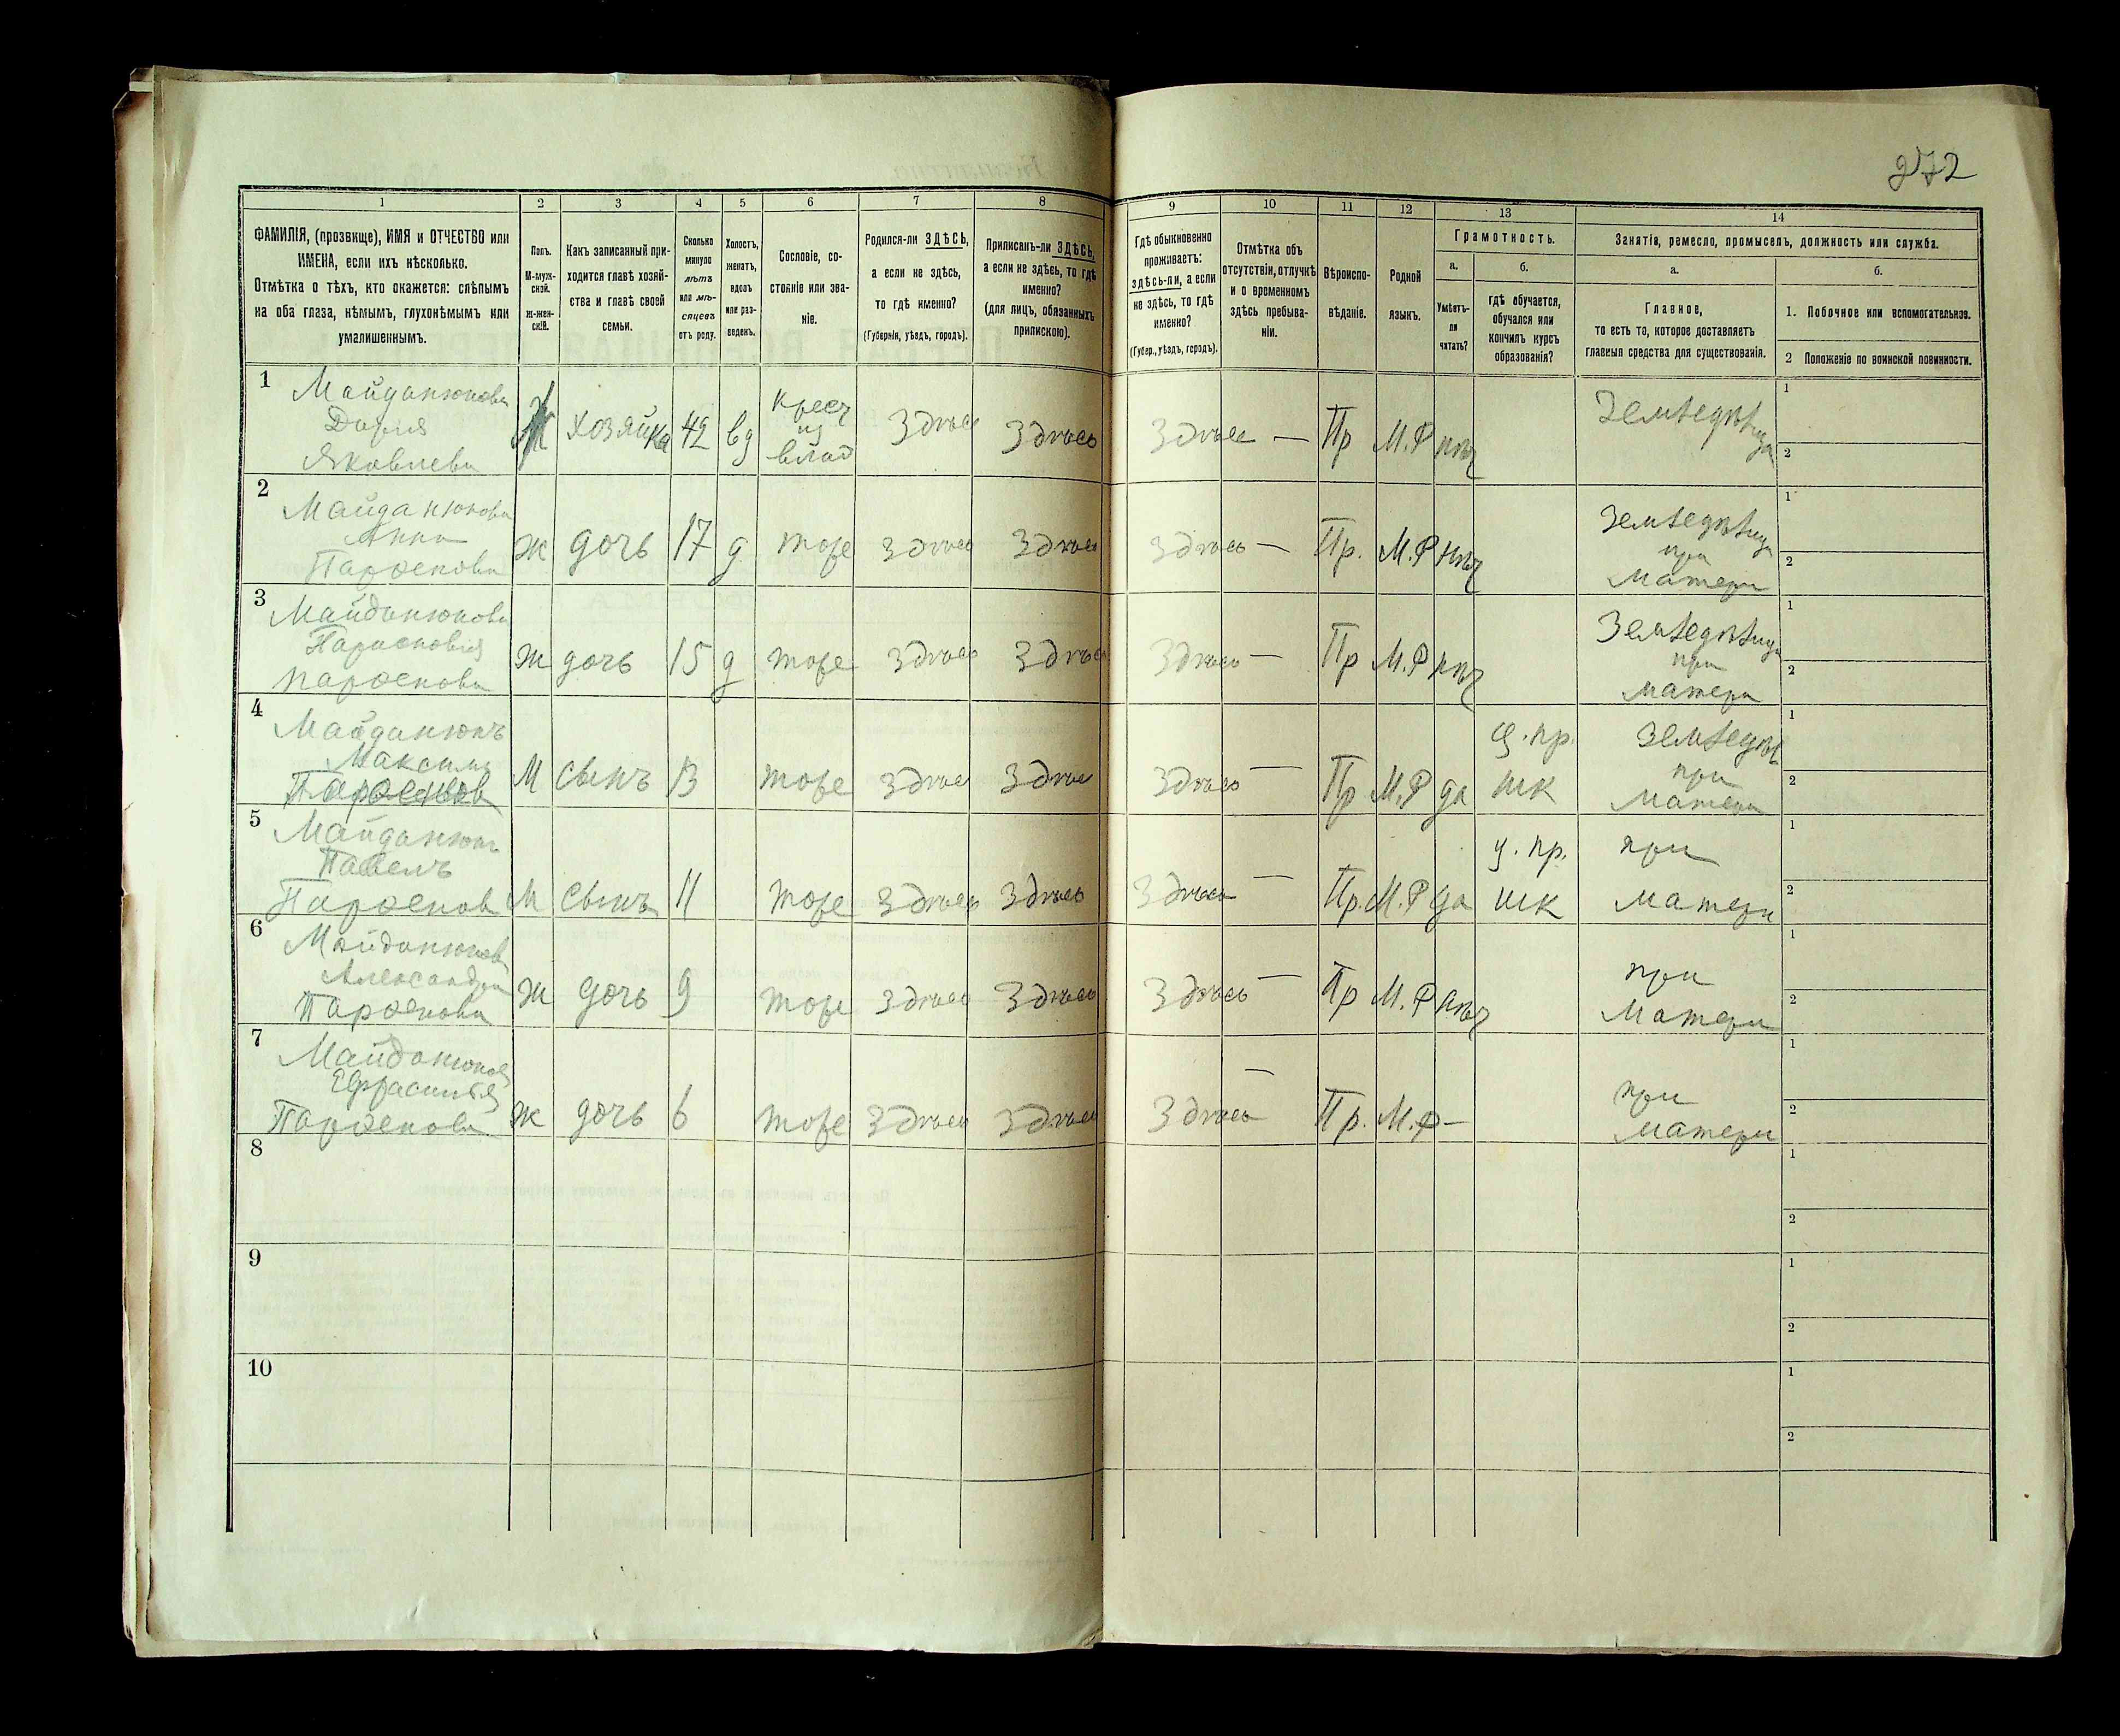 272
1 2 3 4 5 6 7 8 9 10 11 12 13 14
ФАМИЛІЯ, (прозвище), ИМЯ и ОТЧЕСТВО или
ИМЕНА, если ихъ нѣсколько.
Отмѣтка о тѣхъ, кто окажется: слѣпымъ
на оба глаза, нѣмымъ, глухонѣмымъ или
умалишеннымъ.
Полъ.
М-муж-
ской.
ж-жен-
скій.
Какъ записанный при-
ходится главѣ хозяй-
ства и главѣ своей
семьи.
Сколько
минуло
лѣтъ
или мѣ-
сяцевъ
отъ роду.
Холостъ,
женатъ,
вдовъ
или раз-
веденъ.
Сословіе, со-
стояніе или зва-
ніе.
Родился-ли ЗДѢСЬ,
а если не здѣсь,
то гдѣ именно?
(Губернія, уѣздъ, городъ).
Приписанъ-ли ЗДѢСЬ,
а если не здѣсь, то гдѣ
именно?
(для лицъ, обязанныхъ
припискою).
Гдѣ обыкновенно
проживаетъ:
здѣсь-ли, а если
не здѣсь, то гдѣ
именно?
(Губер., уѣздъ, городъ).
Отмѣтка объ
отсутствіи, отлучкѣ
и о временномъ
здѣсь пребыва-
ніи.
Вѣроиспо-
вѣданіе.
Родной
языкъ.
Грамотность.
а.
Умѣетъ-
ли
читать?
б.
гдѣ обучается,
обучался или
кончилъ курсъ
образованія?
Занятіе, ремесло, промыселъ, должность или служба.
а.
Главное,
то есть то, которое доставляетъ
главныя средства для существованія.
б.
1. Побочное или вспомогательное.
2 Положеніе по воинской повинности.
1
Майданюкова
Дарія
Яковлева
Ж хозяйка 42 вд
крест
из
влад
Здѣсь Здѣсь Здѣсь — Пр М.Р нѣт
1
2
2
Майданюкова
Анна
Парѳенова
ж дочь 17 д тоже здѣсь здѣсь здѣсь — Пр. М.Р нѣт
при
матери
1
2
3
Майданюкова
Парѳенова
ж дочь 15 д тоже здѣсь здѣсь здѣсь — Пр М.Р нѣт
при
матери
1
2
4
Майданюкъ
Максимъ
М сынъ 13 тоже здѣсь здѣсь здѣсь — Пр М.Р да
ц. пр.
шк
при
матери
1
2
5
Майданюкъ
Павелъ
Парѳенов
М сынъ 11 тоже здѣсь здѣсь здѣсь — Пр. М.Р да
ц. пр.
шк
при
матери
1
2
6
Майданюкова
Александра
Парѳенова
ж дочь 9 тоже здѣсь здѣсь здѣсь — Пр М.Р нѣт
при
матери
1
2
7
Майданюкова
Ефросинія
Парѳенова
ж дочь 6 тоже здѣсь здѣсь здѣсь — Пр. М.Р —
при
матери
1
2
8
1
2
9
1
2
10
1
2